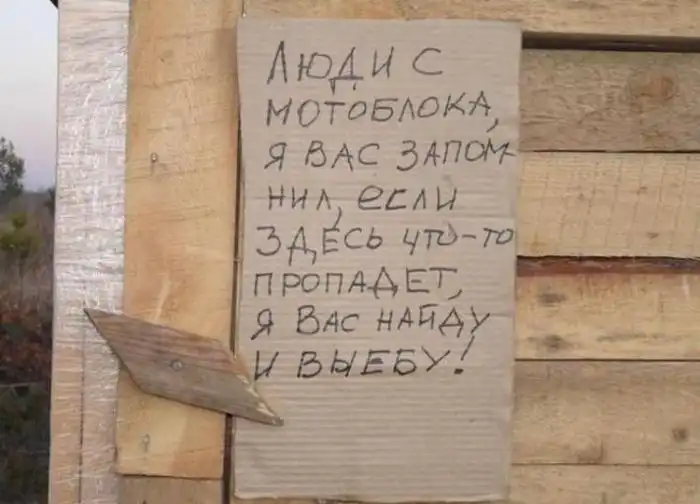 ЛЮДИ С
МОТОБЛОКА,
Я ВАС ЗАПОМ-
НИЛ, ЕСЛИ
ЗДЕСЬ ЧТО-ТО
ПРОПАДЕТ,
Я ВАС НАЙДУ
И ВЫЕБУ!